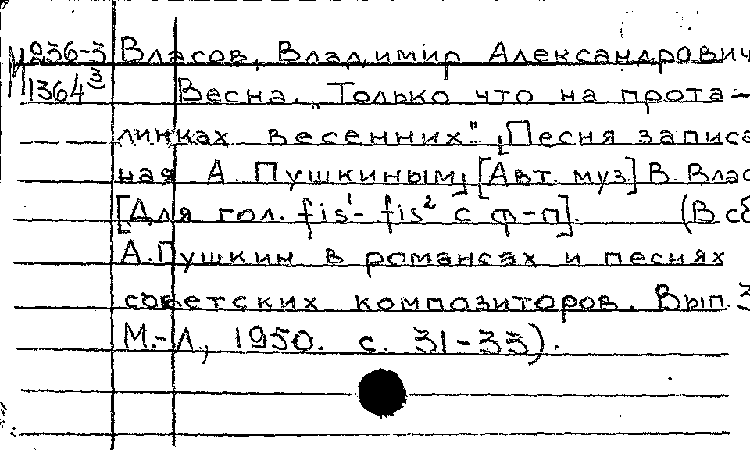 М 236-3 Власов, Владимир Александрович
1364³ Весна. "Только что на прота-
линках весенних". [Песня записа
ная А. Пушкиным] [Авт. муз] В. Влас
[Для гол. fis¹-fis² с ф-п]. (В сб
А. Пушкин в романсах и песнях
советских композиторов. Вып. 3
М.-Л., 1950. с. 31-33).